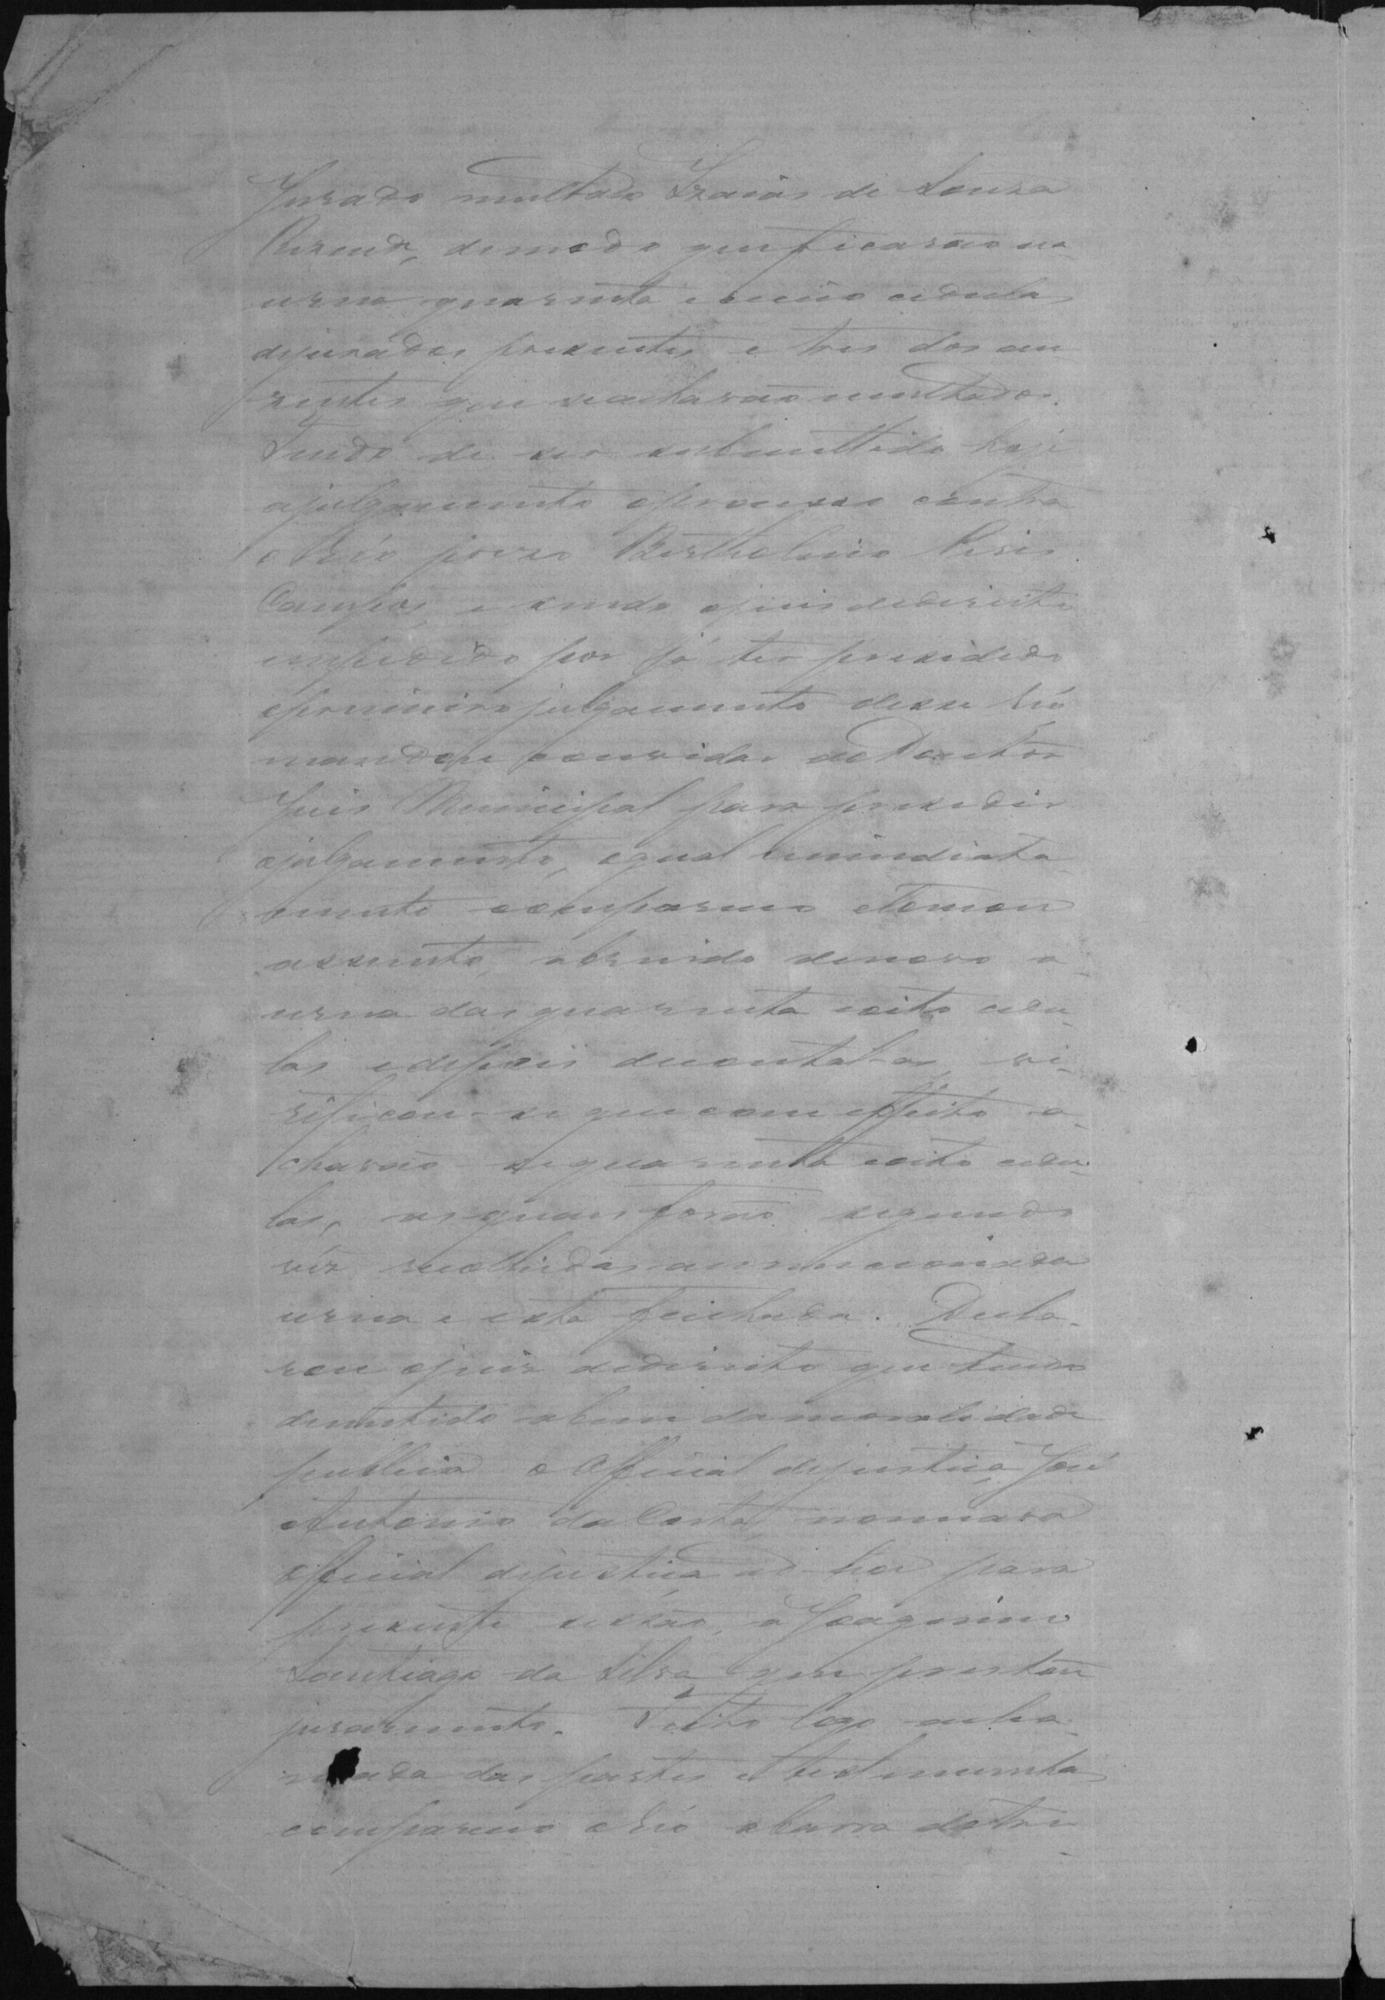 Jurado multado Izaias de Souza
Rezende, demodo que ficarão na
urna quarenta e cinco cedulas
dejurados presentes e tres dos au
sentes que se acharão multados.
Tendo de ser submettido hoje
ajulgamento oprocesso contra
o Réo prezo Bertholino Pires
Campos, e sendo ojuis dedireito
impedido por já ter presidido
oprimeiro julgamento desse Réo
mandou convidar ao Doutor
Juis Municipal para presidir
ojulgamento, oqual immediata
mente compareceo etomou
assento, abrindo denovo a
urna das quarenta eoito cedu-
las edepois decontal-as, ve-
rificou-se que com effeito a-
charão-se quarenta eoito cedu-
las, as quaes forão segunda
vez recolhidas amencionada
urna e esta feichada. Decla-
rou ojuiz dedireito que tendo
demitido abem damoralidade
publica o Official dejustiça José
Antonio da Costa, nomeava
official dejustiça ad-hoc para
presente sessão, a Joaquim
Santiago da Silva que prestou
juramento. Feita logo acha-
mada das partes etestemunhas
compareceo oRéo abarra dotri-